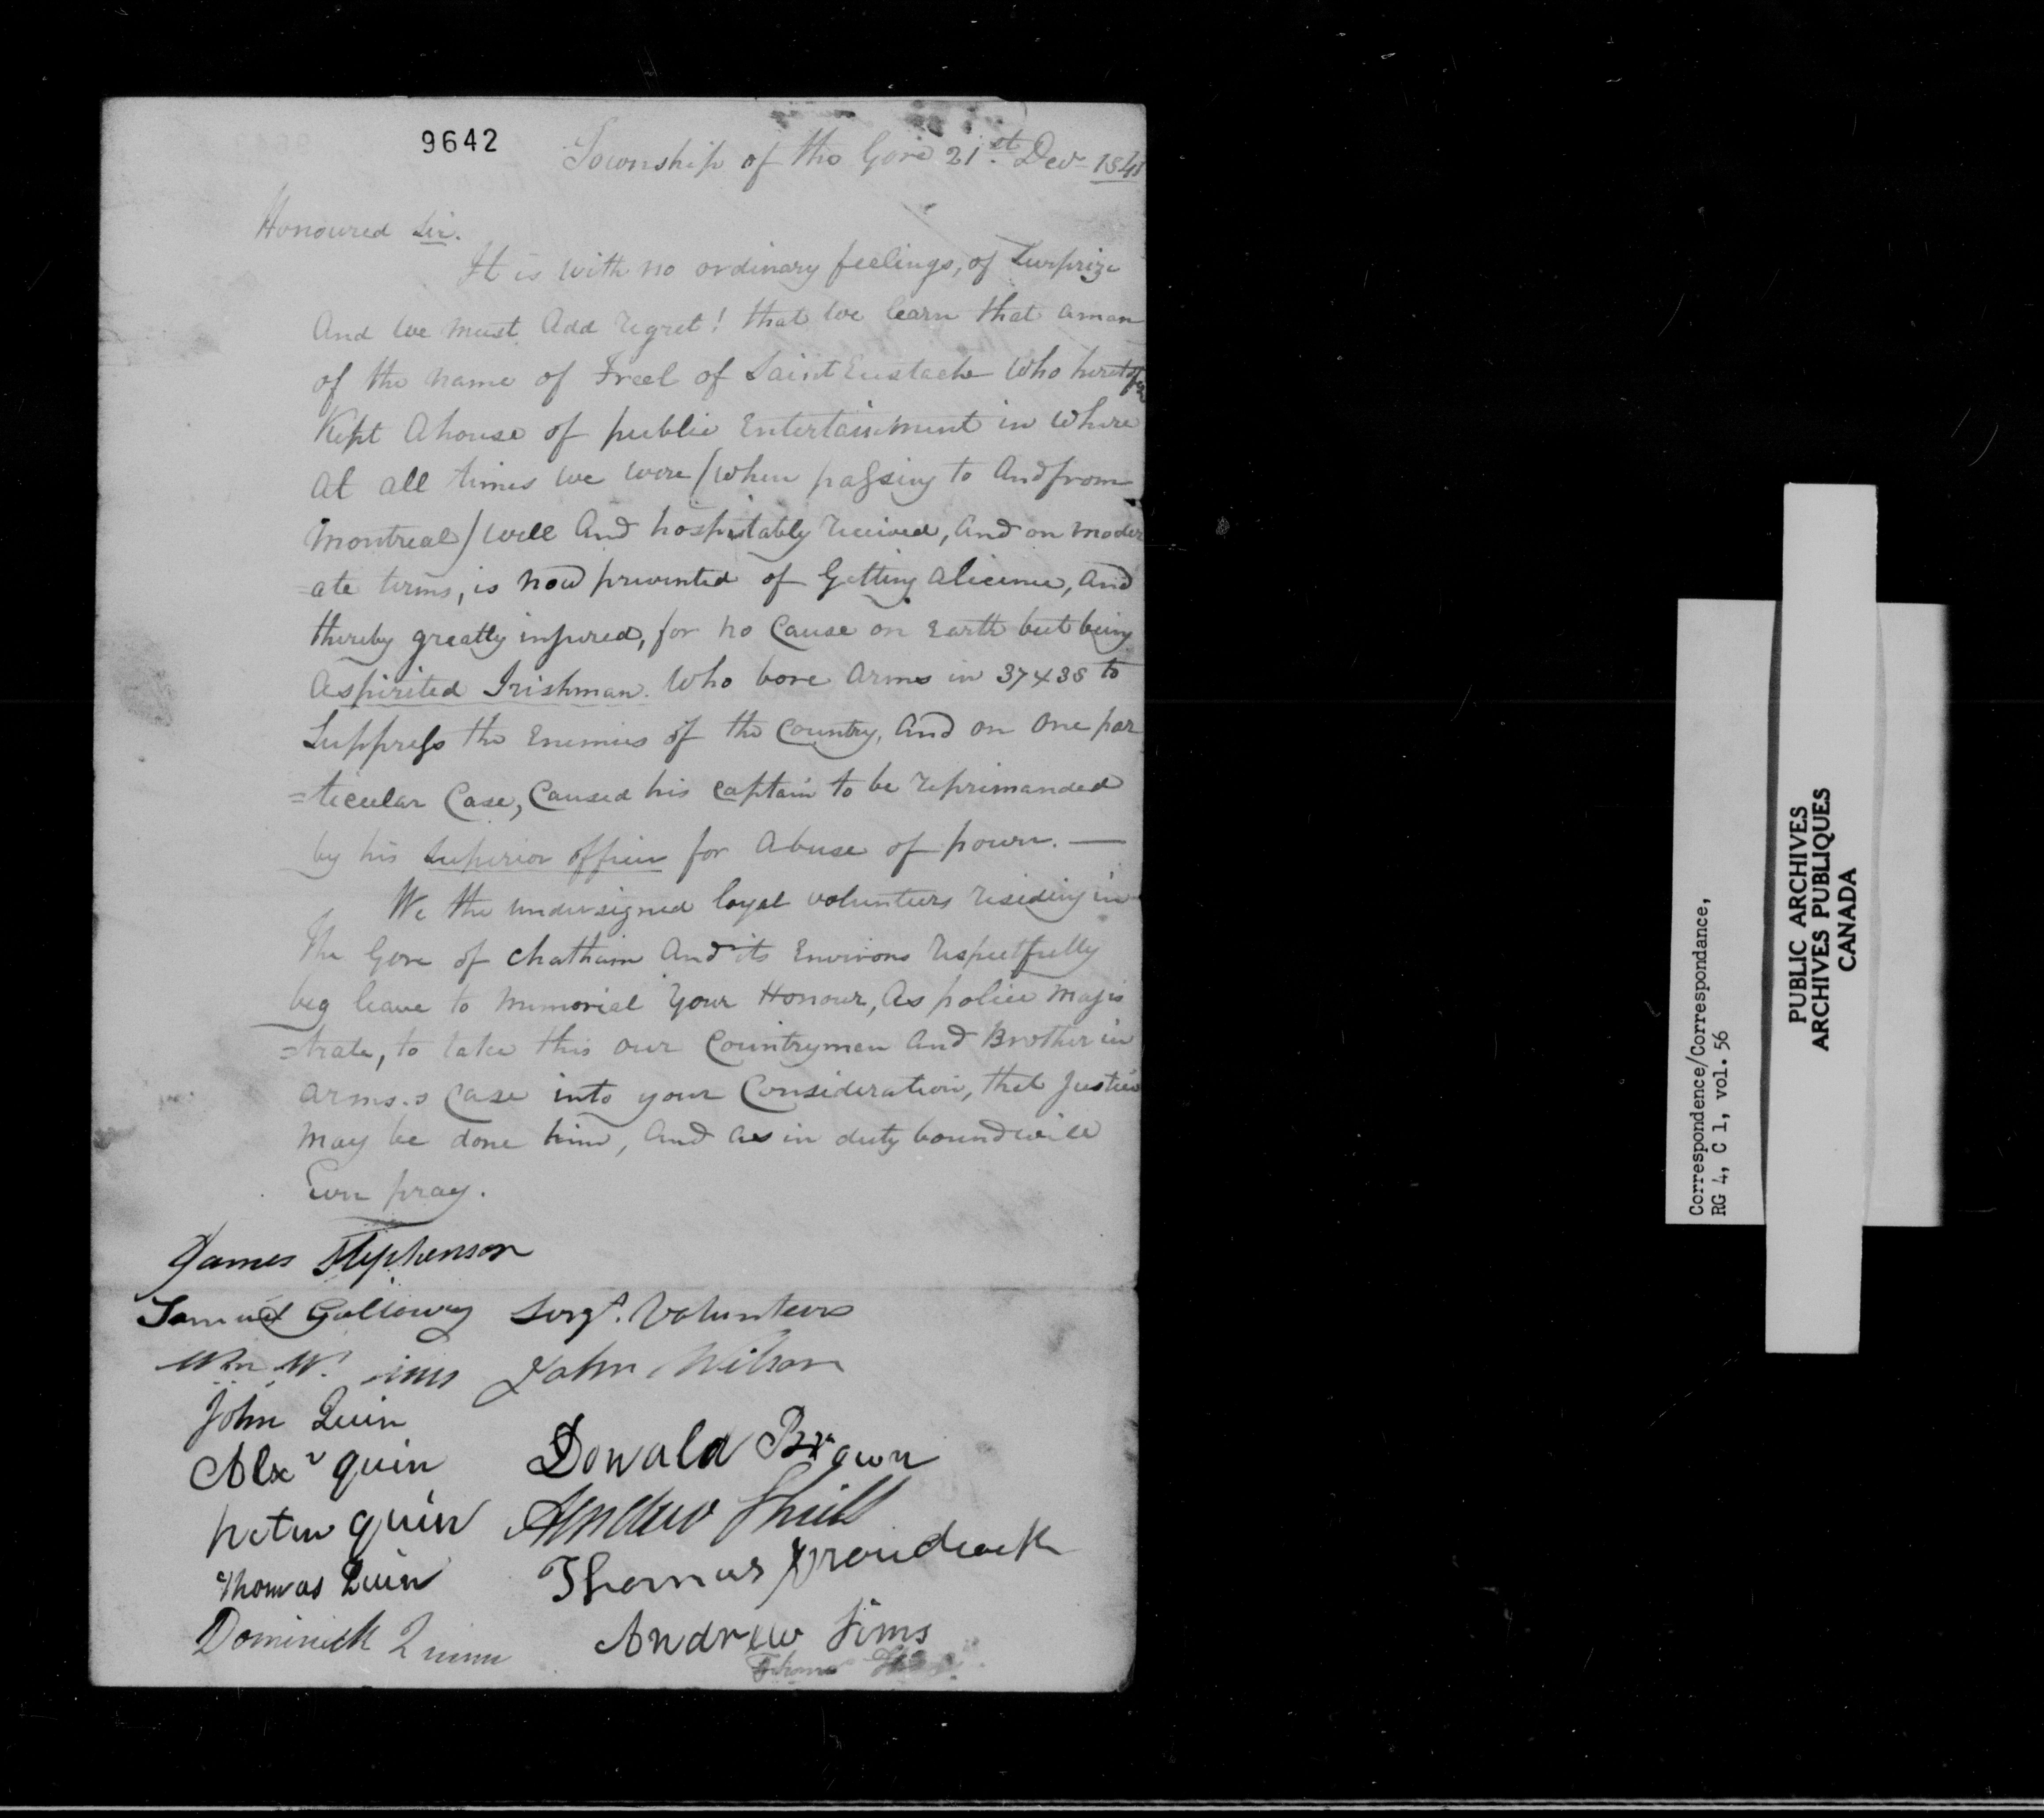 9642
Township of the Gore 21st Decr 1841
Honoured Sir.
It is with no ordinary feelings, of Surprize
And we must Add regret! that we learn that aman
of the name of Freel of Saint Eustache who heretofore
Kept Ahouse of public Entertainment in where
At all times we were / when passing to And from
Montreal / well And hospitably received, And on moder
=ate terms, is now prevented of Getting alicence, And
thereby greatly injured, for no Cause on Earth but being
Aspirited Irishman. Who bore Arms in 37 & 38 to
Suppress the Enemies of the Country, And on One par
=ticular Case, Caused his Captain to be reprimanded
by his Superior officer for Abuse of power. —
We the undersigned loyal volunteers residing in
The Gore of Chatham And its Environs respectfully
beg leave to memorial Your Honour, As police Magis
=trate, to take this our Countryman And Brother in
Arms.s Case into your Consideration, that Justice
may be done him, And as in duty bound will
Ever pray.
James Stephenson
Samuel Galloway Sergt. Volunteers
Wm John Wilson
John Quin
Alexr quin Donald Brown
peter quin Andrew Shiell
Thomas Quin Thomas
Dominick Quinn Andrew Sims
Correspondence/Correspondance,
RG 4, C 1, vol. 56
PUBLIC ARCHIVES
ARCHIVES PUBLIQUES
CANADA